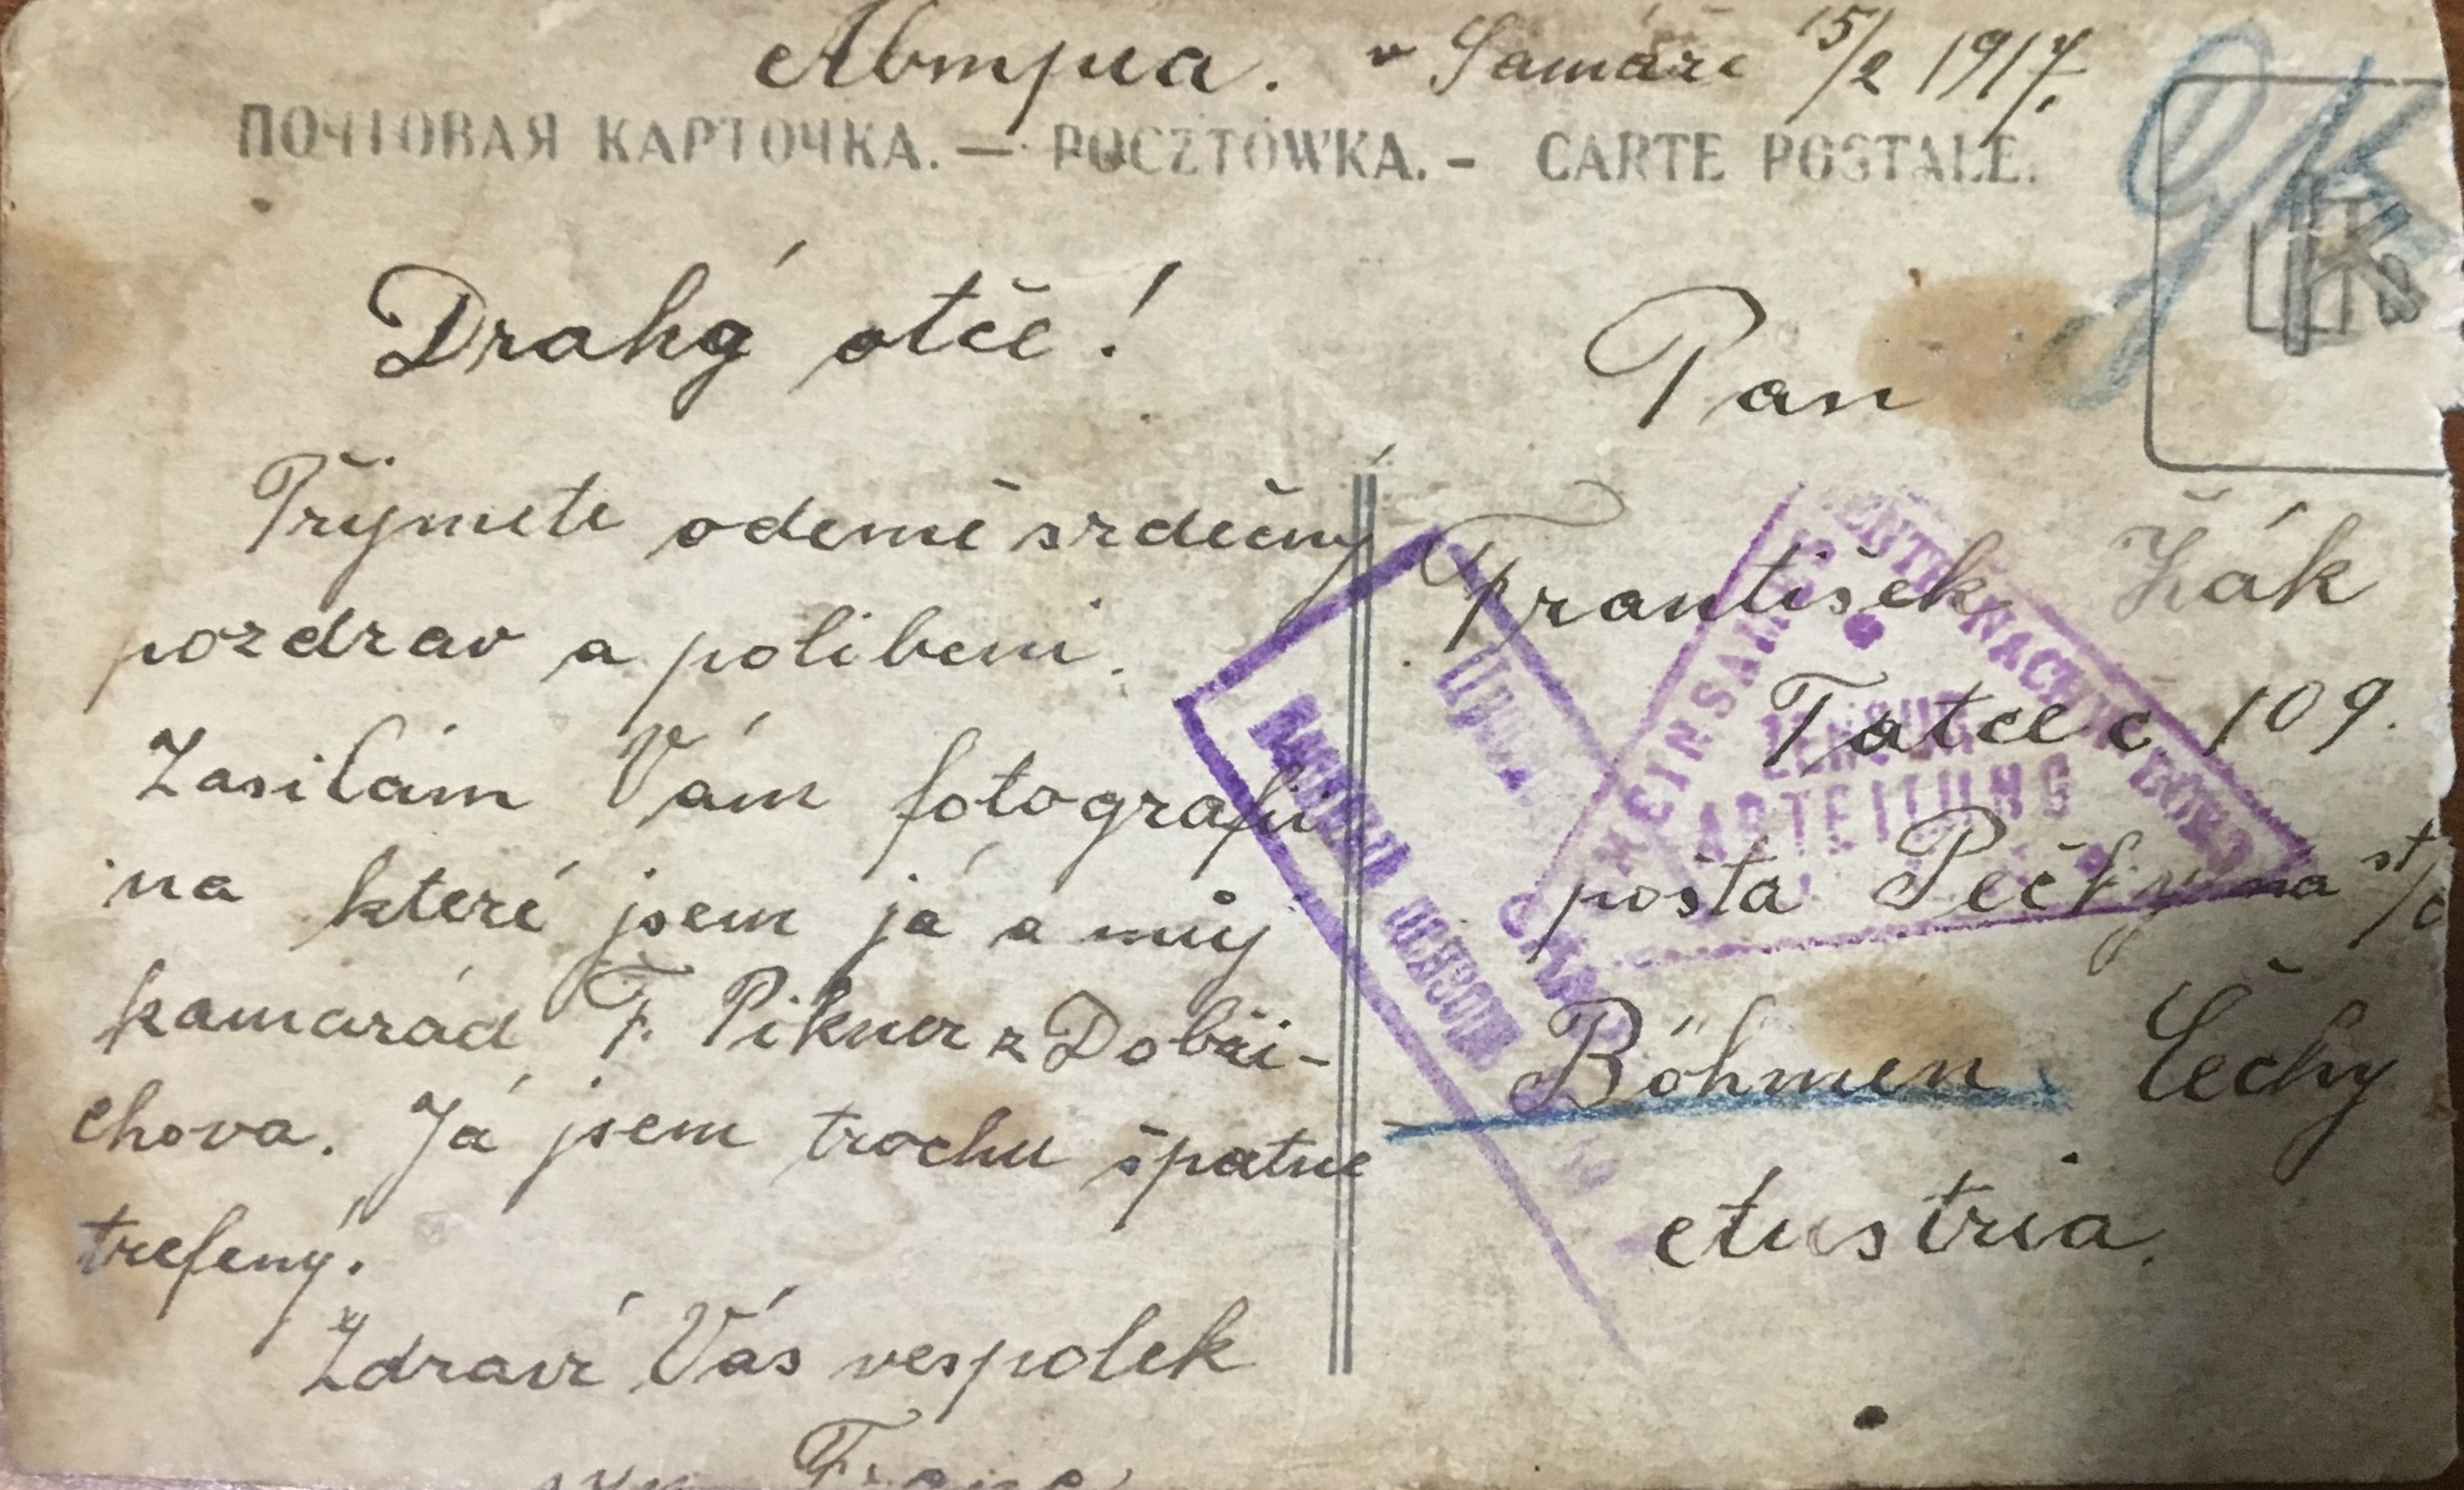 Австрия. v Samáře 15/2 1917.
ПОЧТОВАЯ КАРТОЧКА. — POCZTÓWKA. - CARTE POSTALE.
Drahý otče!
Přijmete odemě srdečný
pozdrav a polibeni.
Zasilám Vám fotografii
na které jsem já a můj
kamarád F. Pikner z Dobři-
chova. Já jsem trochu špatně
trefený.
Zdraví Vás vespolek
syn Frana
Pan
František Žák
Tatce č 109.
pošta Pečky na st/d
Böhmen Čechy
Austria.
ZENSUR
ABTEILUNG